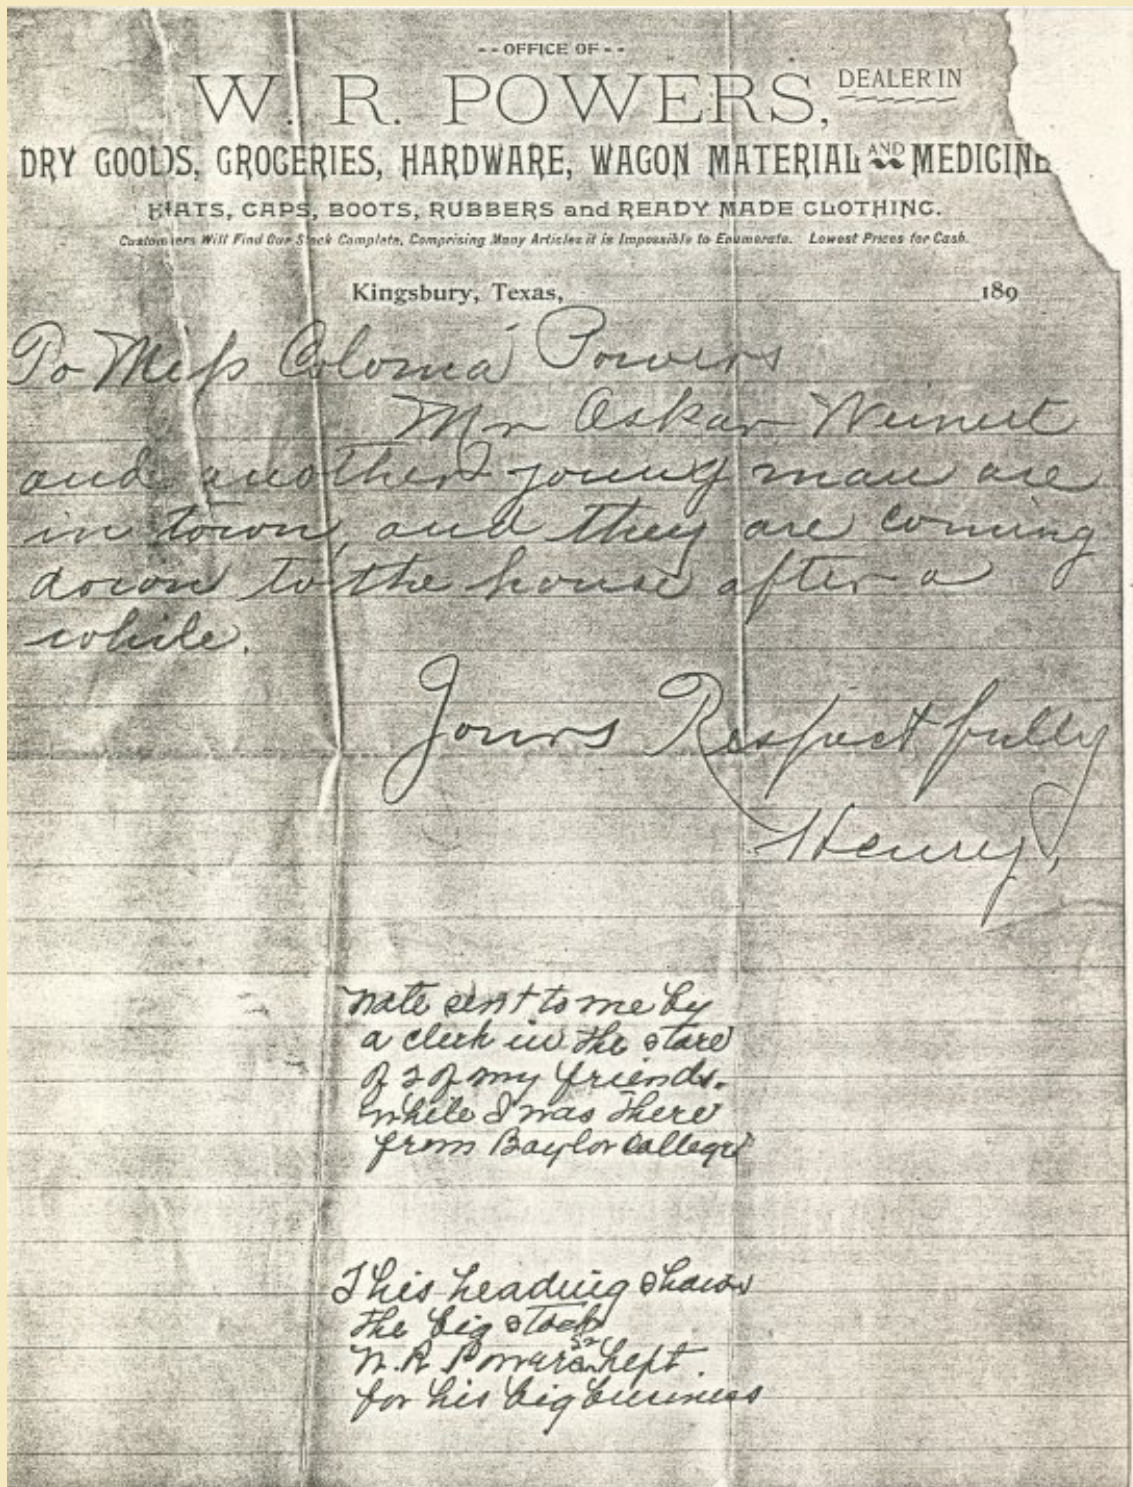 -- OFFICE OF --
W. R. POWERS, DEALER IN
DRY GOODS, GROCERIES, HARDWARE, WAGON MATERIAL AND MEDICINE
HATS, CAPS, BOOTS, RUBBERS and READY MADE CLOTHING.
Customers Will Find Our Stock Complete, Comprising Many Articles it is Impossible to Enumerate. Lowest Prices for Cash.
Kingsbury, Texas, 189
To Miss Coloma Powers
Mr Oskar Weinert
and another young man are
in town, and they are coming
down to the house after a
while.
Yours Respectfully
Henry,
Note sent to me by
a clerk in the store
of 2 of my friends.
while I was there
from Baylor College
This heading shows
the big stock
W. R. Powers Sr kept
for his big business